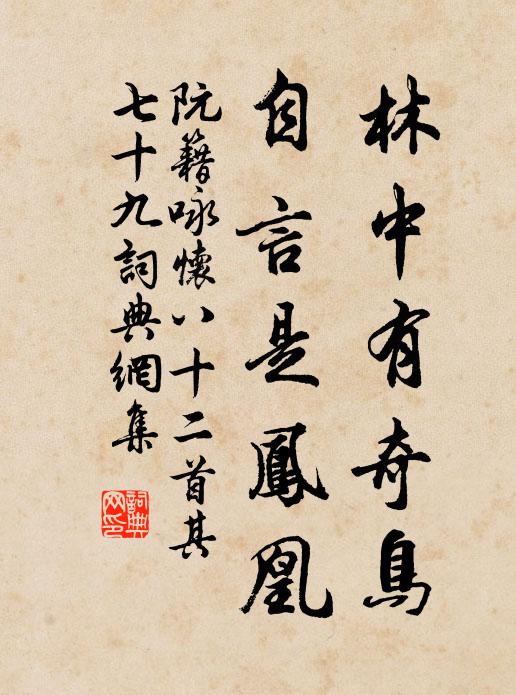 林中有奇鳥
自言是鳳凰
阮籍咏懷八十二首其
七十九詞典網集
詞典网印